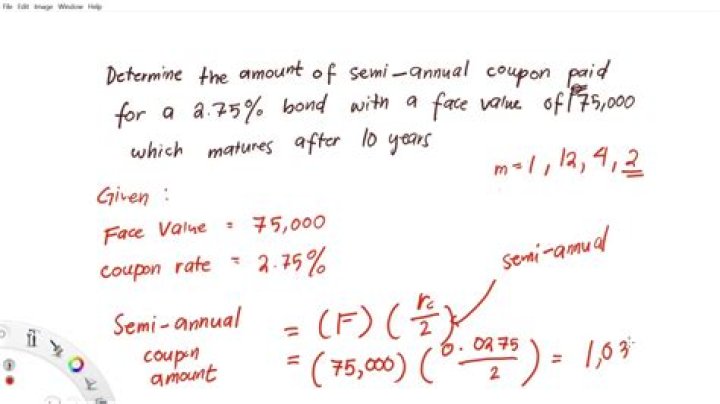 File Edit Image Window Help
Determine the amount of semi-annual coupon paid
for a 2.75% bond with a face value of ₱75,000
which matures after 10 years
m = 1, 12, 4, 2
Given :
Face Value = 75,000
coupon rate = 2.75%
semi-annual
Semi-annual coupon amount = (F) (rc/2)
= (75,000) (0.0275/2) = 1,03